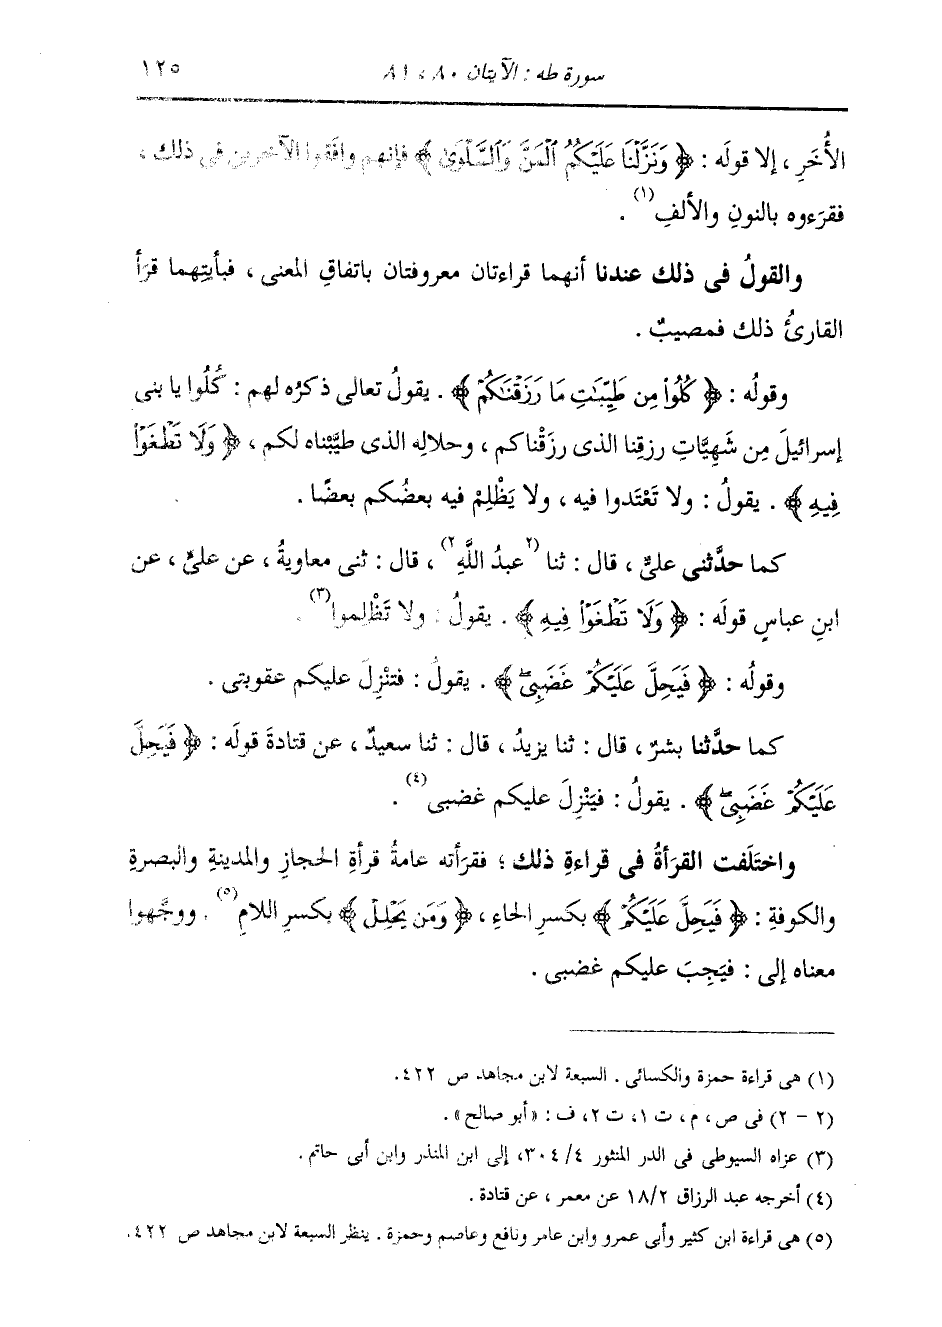 سورة طه : الآيتان ٨٠ ، ٨١
١٢٥
الأُخَرِ ، إلا قولَه : ﴿ وَنَزَّلْنَا عَلَيْكُمُ ٱلْمَنَّ وَٱلسَّلْوَىٰ ﴾ فإنهم وافَقوا الآخرين فى ذلك ،
فقرَءوه بالنونِ والألفِ(١) .
والقولُ فى ذلك عندنا أنهما قراءتان معروفتان باتفاقِ المعنى ، فبأيتِهما قرَأ
القارئُ ذلك فمصيبٌ .
وقولُه : ﴿ كُلُوا۟ مِن طَيِّبَـٰتِ مَا رَزَقْنَـٰكُمْ ﴾ . يقولُ تعالى ذكرُه لهم : كُلُوا يا بنى
إسرائيلَ مِن شَهِيَّاتِ رزقِنا الذى رزَقْناكم ، وحلالِه الذى طيَّبْناه لكم ، ﴿ وَلَا تَطْغَوْا۟
فِيهِ ﴾ . يقولُ : ولا تَعْتَدوا فيه ، ولا يَظْلِمْ فيه بعضُكم بعضًا .
كما حدَّثنى علىٌّ ، قال : ثنا (٢عبدُ اللَّهِ٢) ، قال : ثنى معاويةُ ، عن علىٍّ ، عن
ابنِ عباسٍ قولَه : ﴿ وَلَا تَطْغَوْا۟ فِيهِ ﴾ . يقولُ : ولا تَظْلِموا(٣) .
وقولُه : ﴿ فَيَحِلَّ عَلَيْكُمْ غَضَبِى ﴾ . يقولُ : فتنْزِلَ عليكم عقوبتى .
كما حدَّثنا بشرٌ ، قال : ثنا يزيدُ ، قال : ثنا سعيدٌ ، عن قتادةَ قولَه : ﴿ فَيَحِلَّ
عَلَيْكُمْ غَضَبِى ﴾ . يقولُ : فيَنْزِلَ عليكم غضبى(٤) .
واختَلَفت القرَأةُ فى قراءةِ ذلك ؛ فقرَأته عامةُ قرأةِ الحجازِ والمدينةِ والبصرةِ
والكوفةِ : ﴿ فَيَحِلَّ عَلَيْكُمْ ﴾ بكسرِ الحاءِ ، ﴿ وَمَن يَحْلِلْ ﴾ بكسرِ اللامِ(٥) . ووجَّهوا
معناه إلى : فيَجِبَ عليكم غضبى .
(١) هى قراءة حمزة والكسائى . السبعة لابن مجاهد ص ٤٢٢.
(٢ - ٢) فى ص ، م ، ت ١، ت ٢، ف : «أبو صالح» .
(٣) عزاه السيوطى فى الدر المنثور ٣٠٤/٤، إلى ابن المنذر وابن أبى حاتم .
(٤) أخرجه عبد الرزاق ١٨/٢ عن معمر ، عن قتادة .
(٥) هى قراءة ابن كثير وأبى عمرو وابن عامر ونافع وعاصم وحمزة . ينظر السبعة لابن مجاهد ص ٤٢٢.